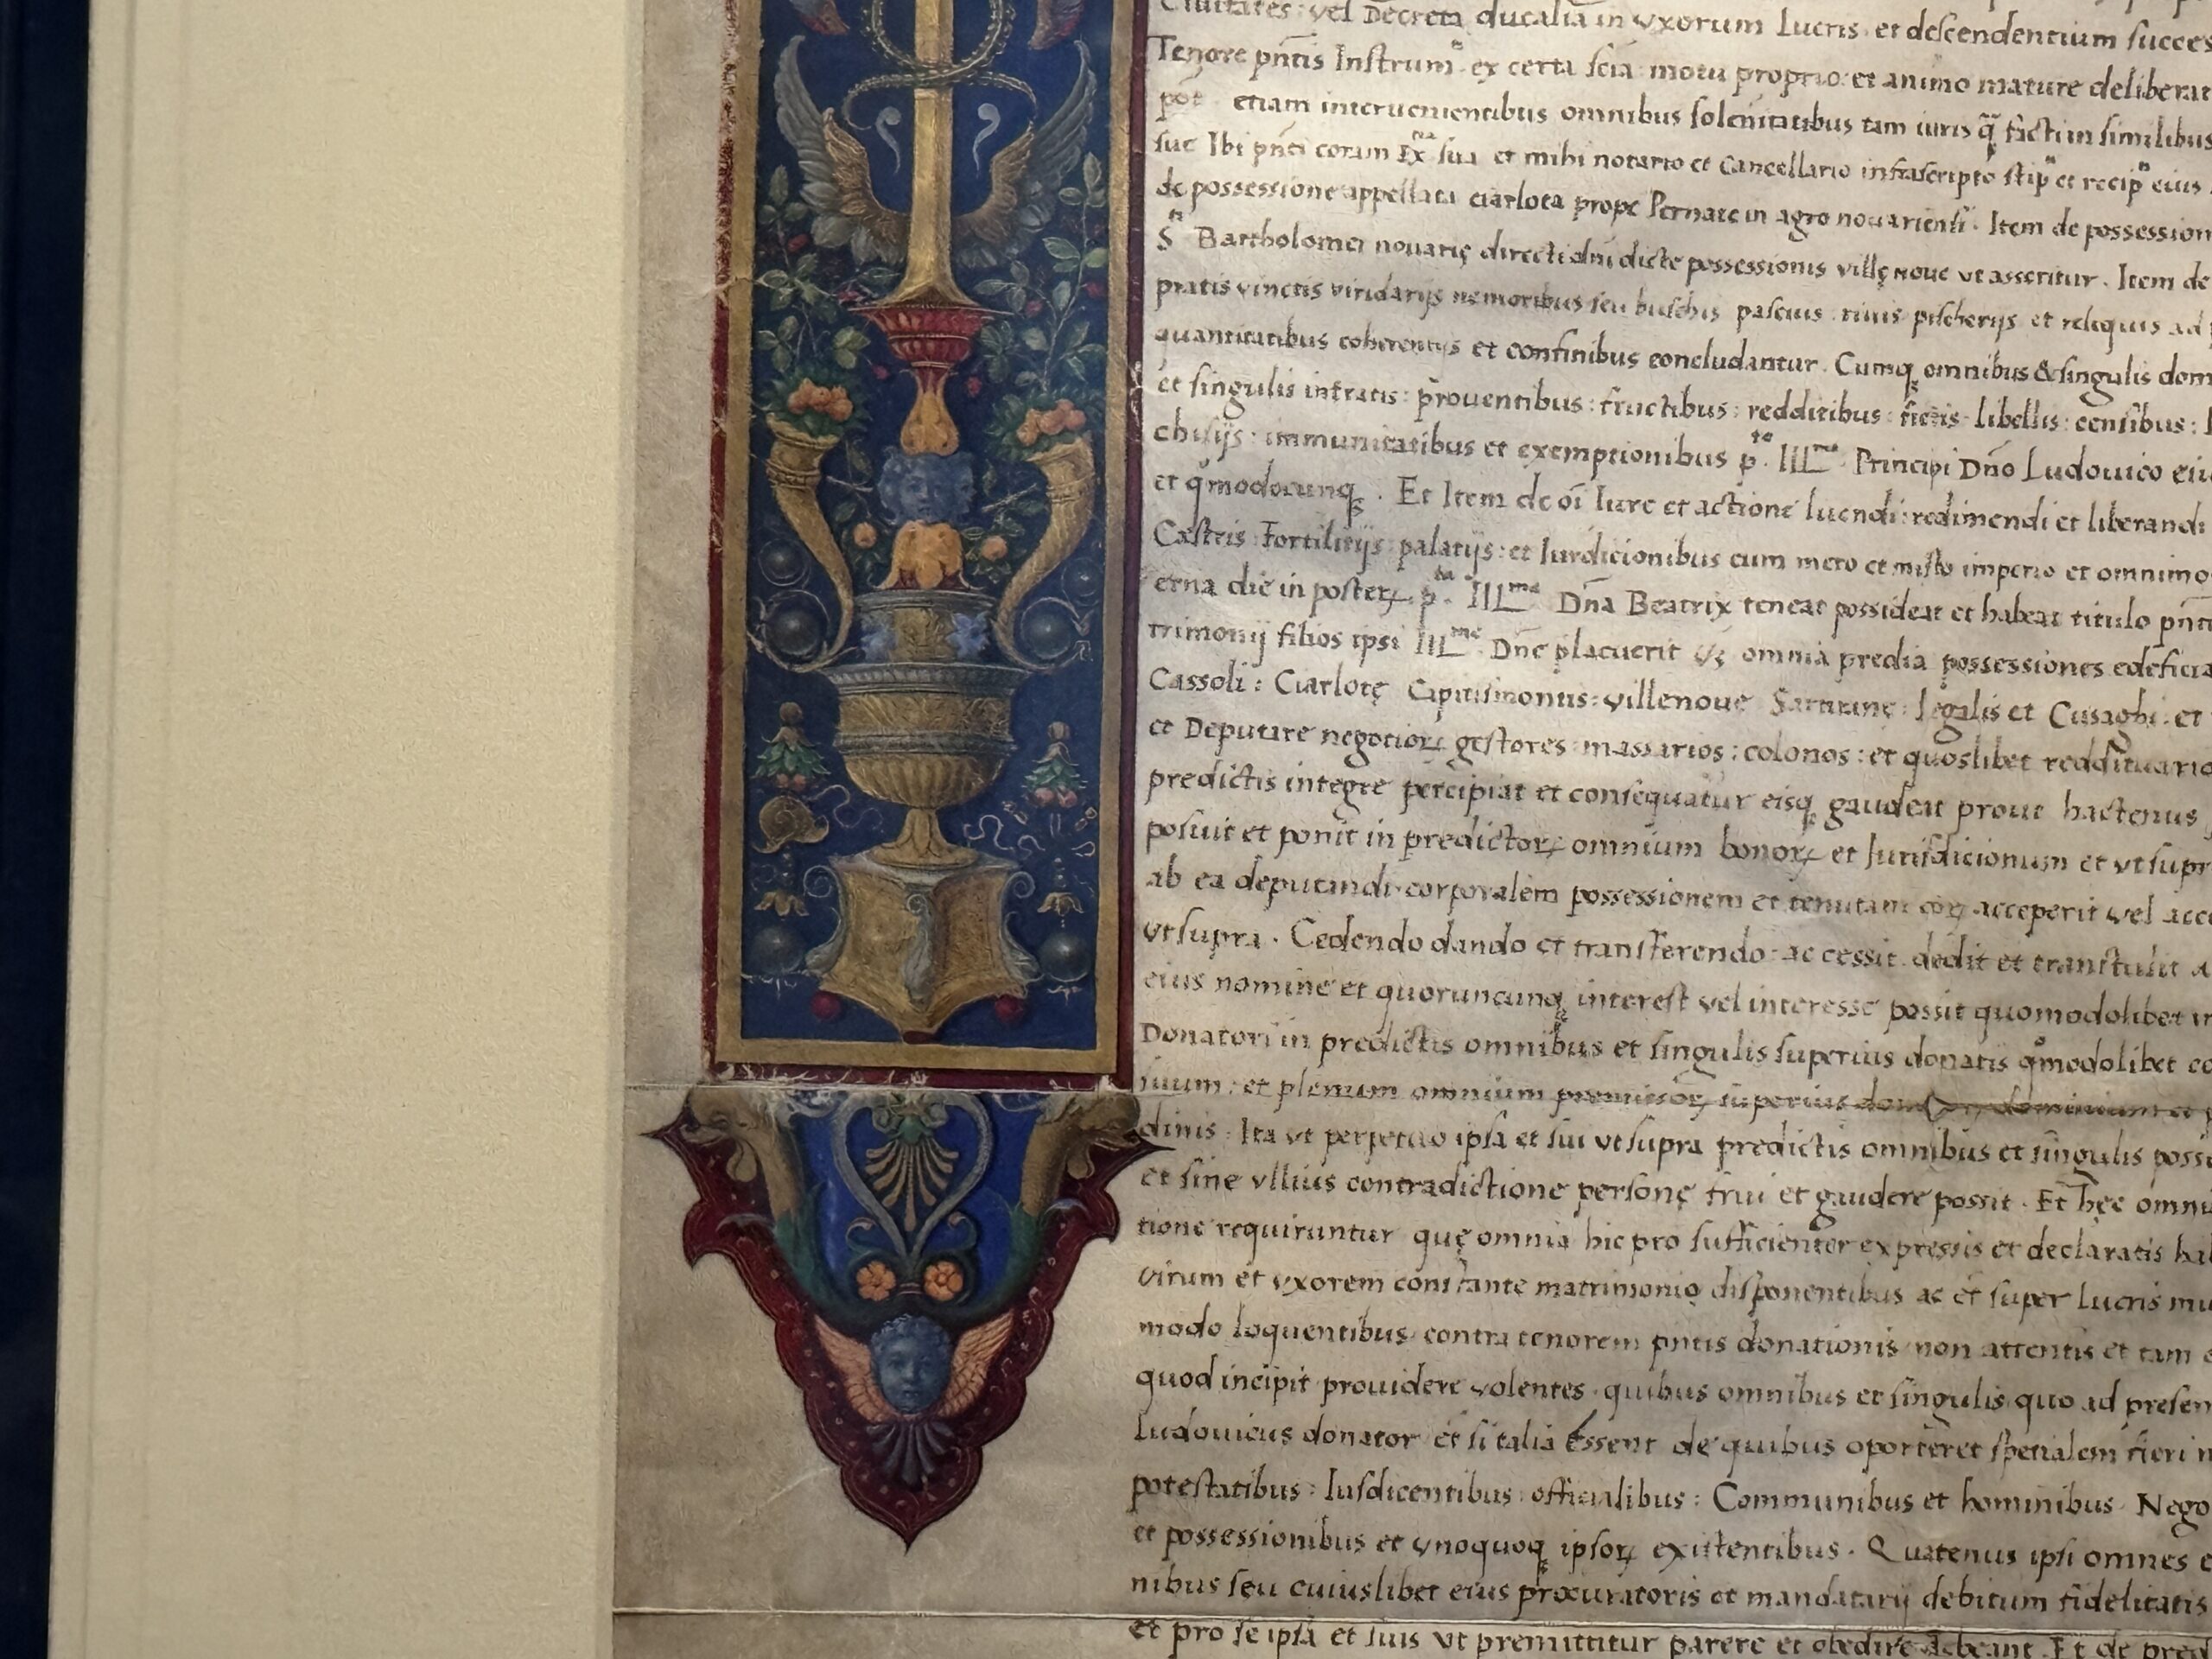 Ciuitates: vel Decreta ducalia in vxorum Lucris et descendentium succes
Tenore pñtis Instrum ex certa scia motu proprio et animo mature deliberat
pot etiam interuenientibus omnibus solenitatibus tam iuris q̃ facti in similibus
sue Ibi pñti coram Ex sua et mihi notario et Cancellario infrascripto stip et recip eius
de possessione appellata ciarlota prope Pernate in agro nouariensi. Item de possession
S Bartholomei nouarię directi dni dicte possessionis villę noue vt asseritur. Item de
pratis vinetis viridarijs nemoribus seu buschis pascuis riuis pischerijs et reliquis ad
quantitatibus coherentijs et confinibus concludantur. Cumq omnibus & singulis dom
et singulis intratis: prouentibus: fructibus: redditibus: fictis libellis: censibus:
chisijs: immunitatibus et exemptionibus p.te Illme Principi Dño Ludouico eiu
et qmodocunq. Et Item de oi Iure et actione luendi: redimendi et liberandi
Castris Fortilitijs palatijs: et Iurdicionibus cum mero et misto imperio et omnimo
erna die in posterꝝ p.ta Illma Dña Beatrix teneat possideat et habeat titulo pñt
trimonij filios ipsi Illme Dñe placuerit omnia predia possessiones edeficia
Cassoli: Ciarlotę Capitisimonus: villenoue Sartiranę: legalis et Cusaghi: et
et Deputare negotioꝝ gestores massarios: colonos: et quoslibet reddituario
predictis integre percipiat et consequatur eisq gaudeat prout hactenus
posuit et ponit in predictoꝝ omnium bonoꝝ et Iurisdicionum et vt supr
ab ea deputandi corporalem possessionem et tenutam acceperit vel acce
vt supra. Cedendo dando et transferendo: ac cessit dedit et transtulit
eius nomine et quoruncunq interest vel interesse possit quomodolibet
Donatori in predictis omnibus et singulis superius donatis qmodolibet co
suum: et plenum omnium premissoꝝ superius dominium et
dinis. Ita vt perpetuo ipsa et sui vt supra predictis omnibus et singulis posse
et sine vllius contradictione personę frui et gaudere possit. Et hęc omni
tione requiruntur quę omnia hic pro sufficienter expressis et declaratis hab
virum et vxorem constante matrimonio disponentibus ac et super lucris mu
modo loquentibus contra tenorem pntis donationis non attentis et tam
quod incipit prouidere volentes quibus omnibus et singulis quo ad presen
Ludouicus donator et si talia essent de quibus oporteret spetialem fieri
potestatibus: Iusdicentibus: officialibus: Communibus et hominibus Nego
et possessionibus et vnoquoq ipsoꝝ existentibus. Quatenus ipsi omnes
nibus seu cuiuslibet eius procuratoris et mandatarij debitum fidelitatis
et pro se ipsa et suis vt premittitur parere et obedire debeant. Et de pred